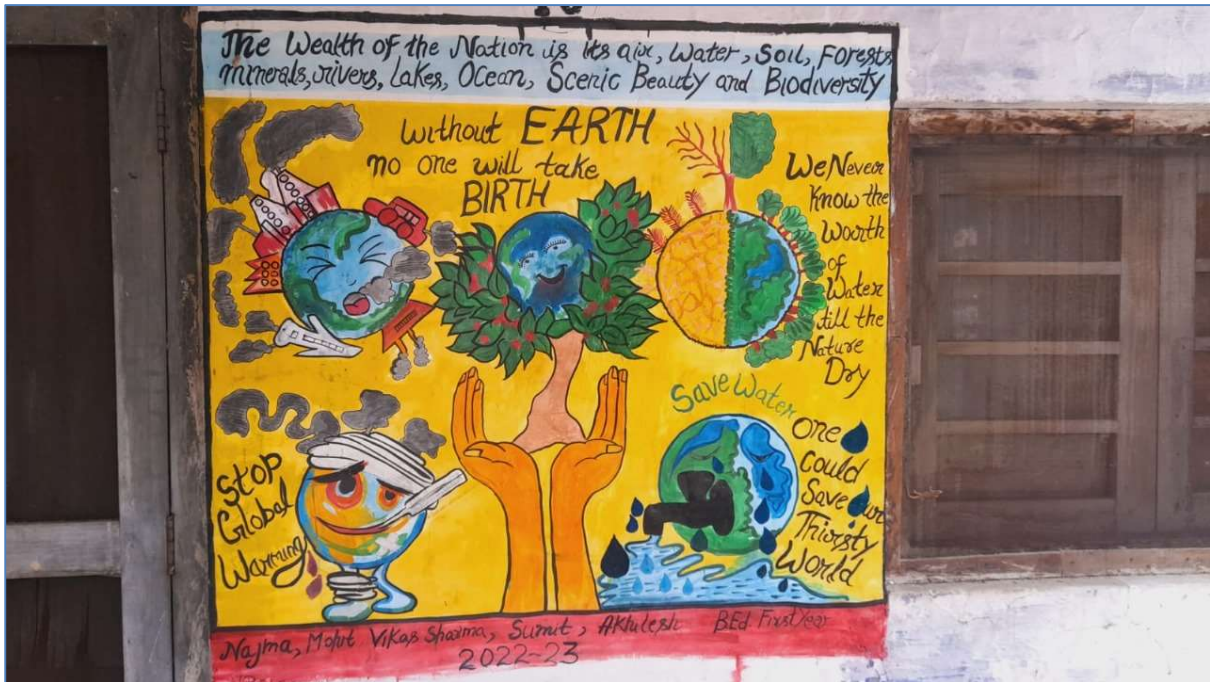 The Wealth of the Nation is its air, Water, Soil, Forests
minerals, rivers, Lakes, Ocean, Scenic Beauty and Biodiversity
Without EARTH
no one will take
BIRTH
We Never
Know the
Worth
of
Water
till the
Nature
Dry
Stop
Global
Warming
Save Water
One
Could
Save Our
Thirsty
World
Najma, Mohit Vikas Sharma, Sumit, Akhilesh BEd First Year
2022-23